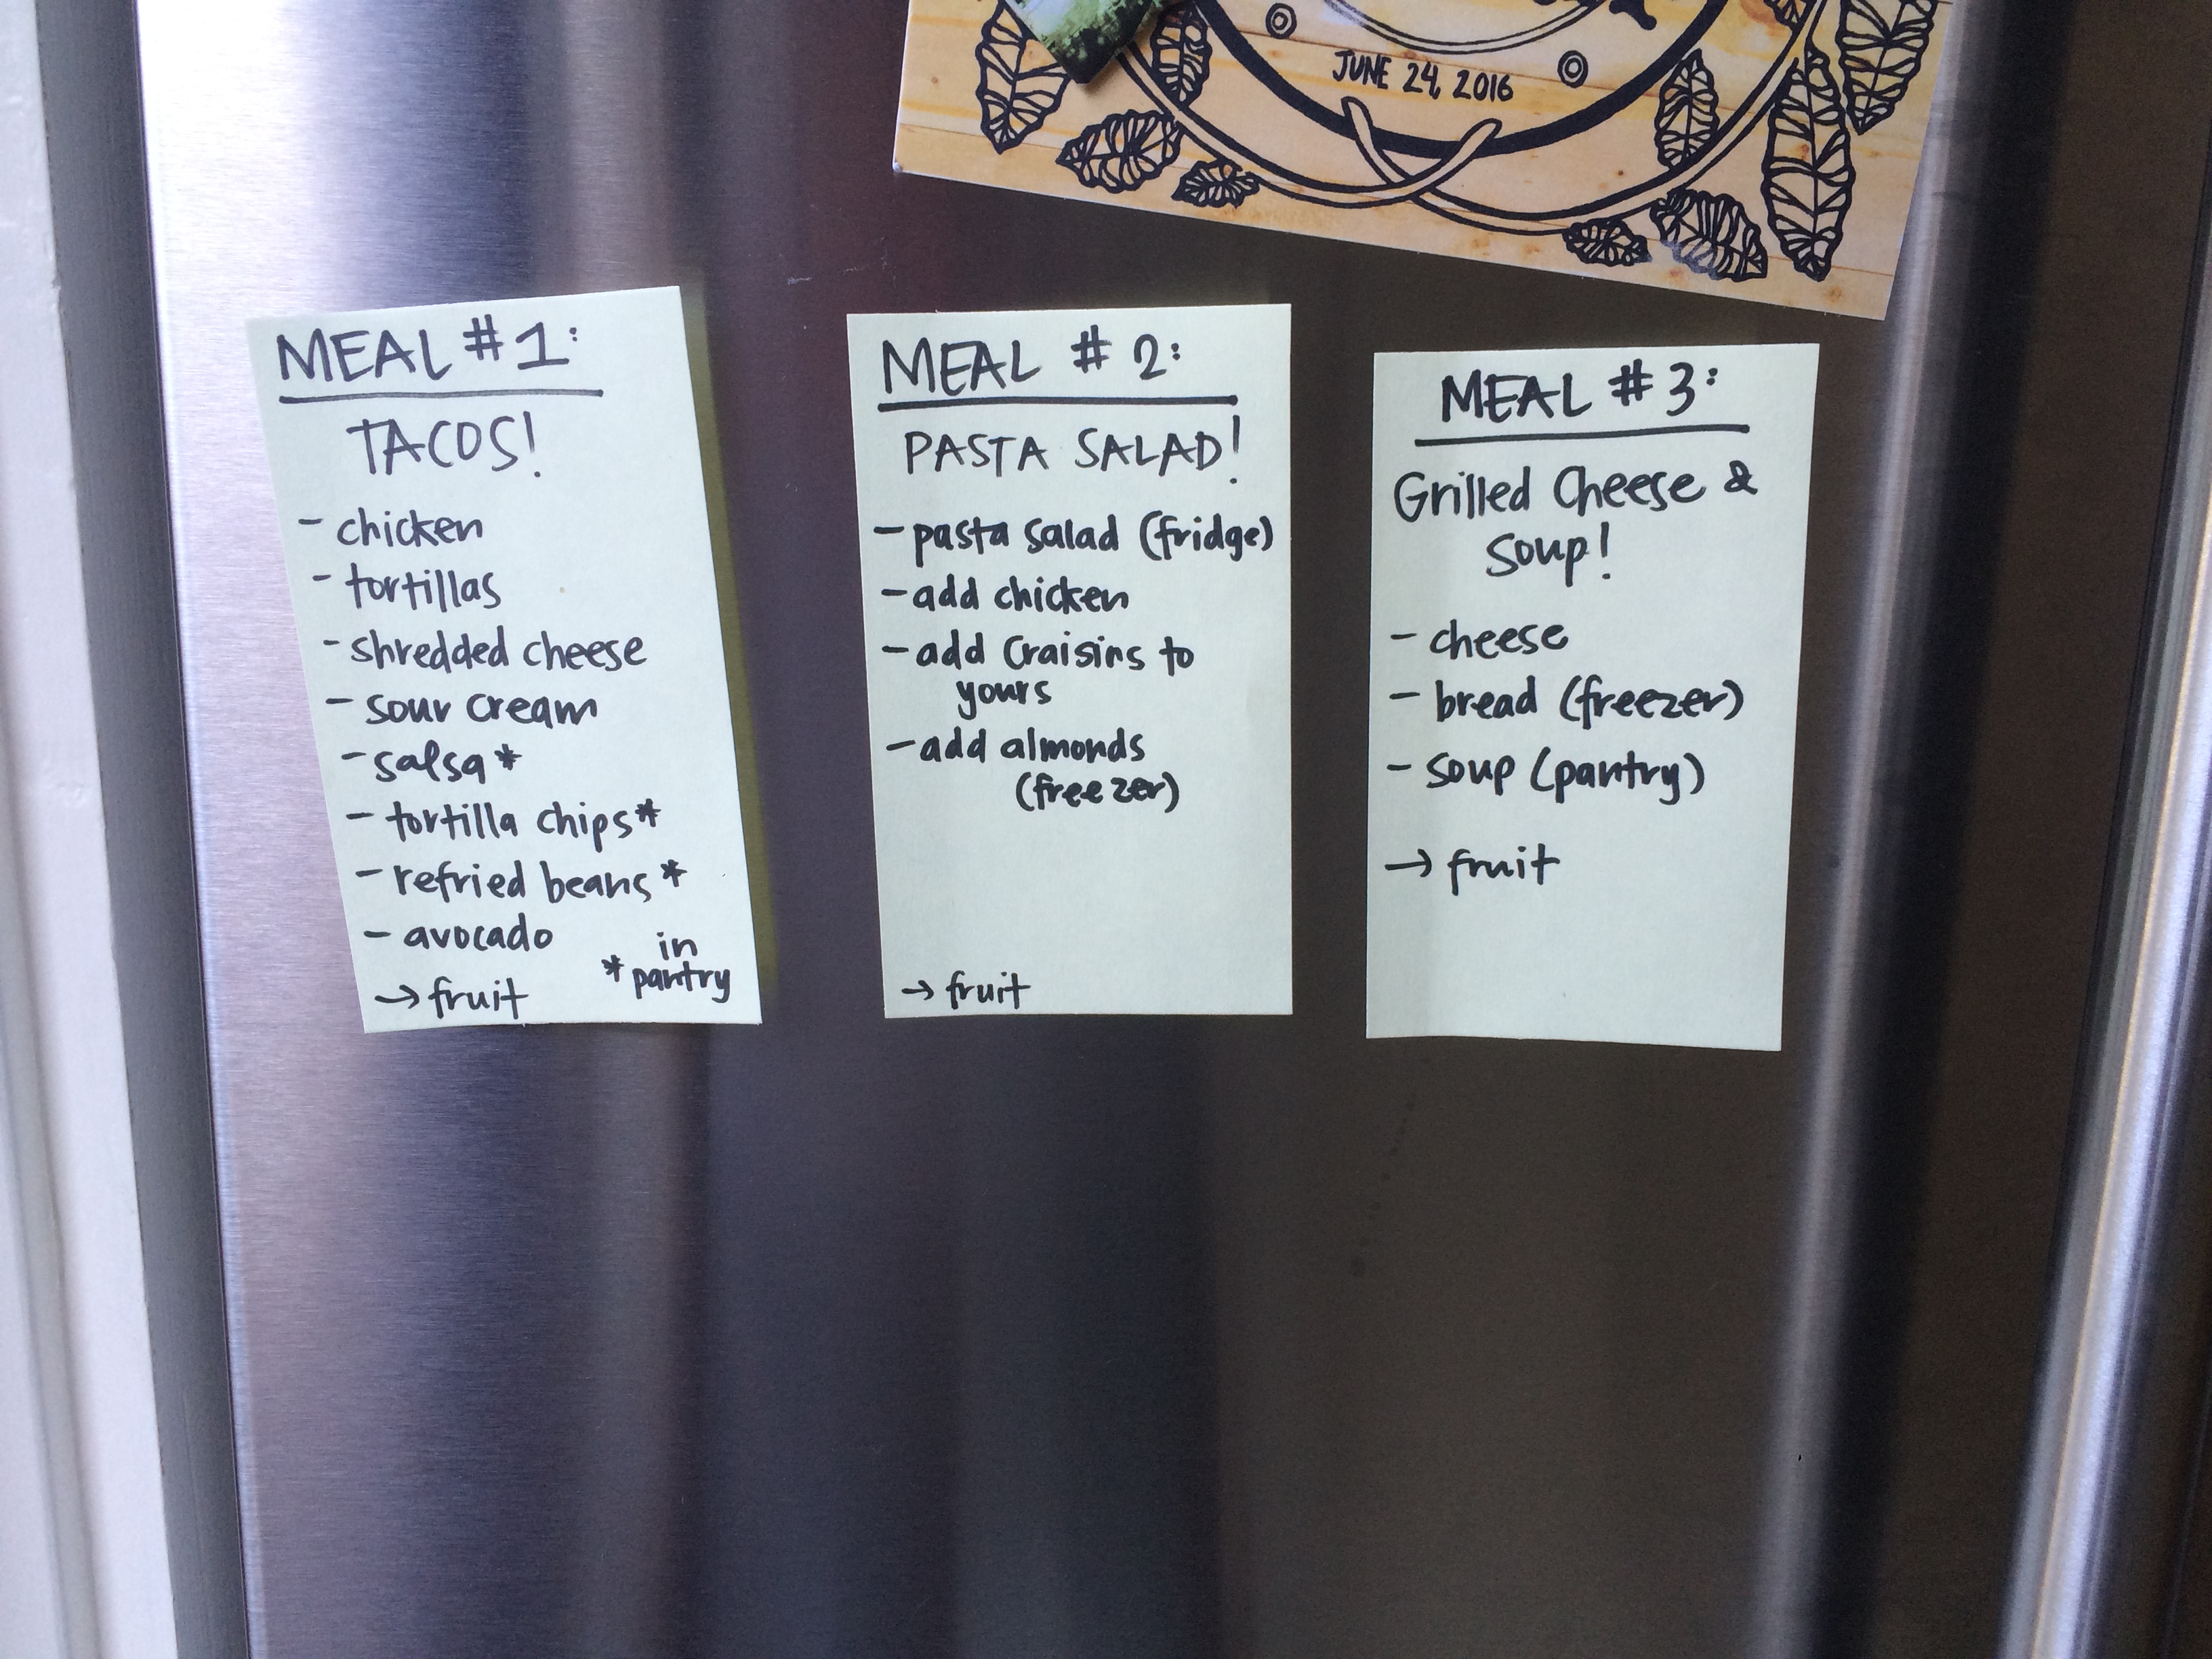 JUNE 24, 2016
MEAL #1:
TACOS!
- chicken
- tortillas
- shredded cheese
- sour cream
- salsa*
- tortilla chips*
- refried beans*
- avocado
→ fruit
* in pantry
MEAL #2:
PASTA SALAD!
- pasta salad (fridge)
- add chicken
- add craisins to
yours
- add almonds
(freezer)
→ fruit
MEAL #3:
Grilled Cheese &
Soup!
- cheese
- bread (freezer)
- soup (pantry)
→ fruit